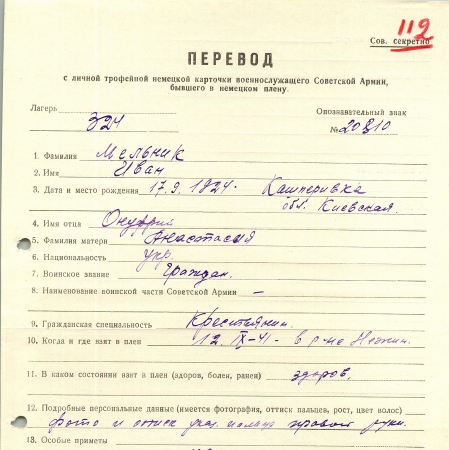 112
Сов. секретно
ПЕРЕВОД
с личной трофейной немецкой карточки военнослужащего Советской Армии,
бывшего в немецком плену.
Лагерь 324
Опознавательный знак
№ 20810
1. Фамилия Мельник
2. Имя Иван
3. Дата и место рождения 17.9.1924. Кашперивка
обл. Киевская.
4. Имя отца Онуфрий
5. Фамилия матери Анастасия
6. Национальность укр.
7. Воинское звание Граждан.
8. Наименование воинской части Советской Армии –
9. Гражданская специальность Крестьянин.
10. Когда и где взят в плен 12. IX-41- в р-не Нежин.
11. В каком состоянии взят в плен (здоров, болен, ранен) здоров.
12. Подробные персональные данные (имеется фотография, оттиск пальцев, рост, цвет волос)
фото и оттиск указ. пальца правой руки.
13. Особые приметы